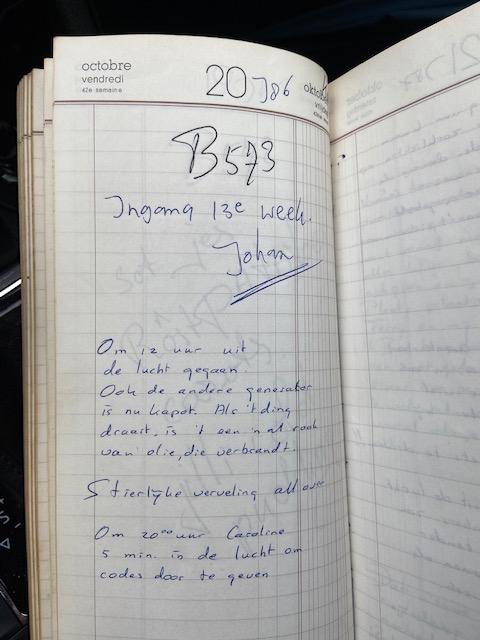 octobre
vendredi
42e semaine
20 J86
oktober
B573
Ingang 13e week.
Johan
Om 12 uur uit
de lucht gegaan
Ook de andere generator
is nu kapot. Als 't ding
draait, is 't een 'n al rook
van olie, die verbrandt.
Stierlijke verveling all over
Om 20⁰⁰ uur Caroline
5 min. in de lucht om
codes door te geven